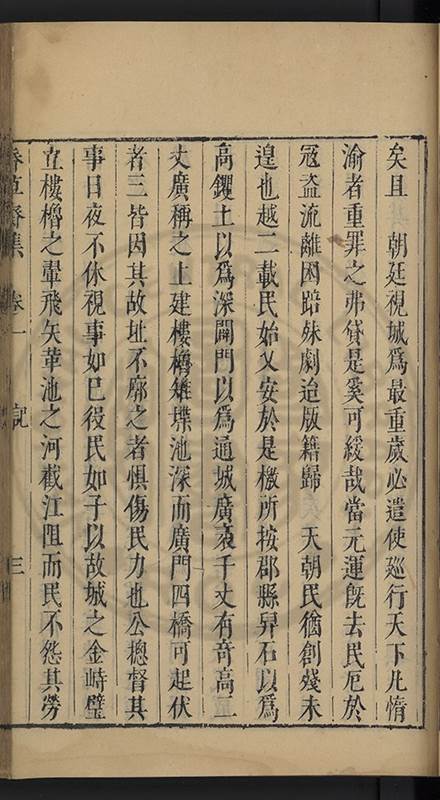 矣且　朝廷視城爲最重歲必遣使廵行天下凡惰
渝者重罪之弗貸是奚可緩哉當元運旣去民厄於
冦盗流離困踣殊劇迨版籍歸　天朝民猶創殘未
遑也越二載民始乂安於是檄所按郡縣舁石以爲
高钁土以爲深闢門以爲通城廣袤千丈有奇高二
丈廣稱之上建樓櫓雉堞池深而廣門四橋可起伏
者三皆因其故址不廓之者惧傷民力也公摠督其
事日夜不休視事如巳役民如子以故城之金峙璧
立樓櫓之翬飛矢革池之河截江阻而民不怨其勞
集　卷一　記　三